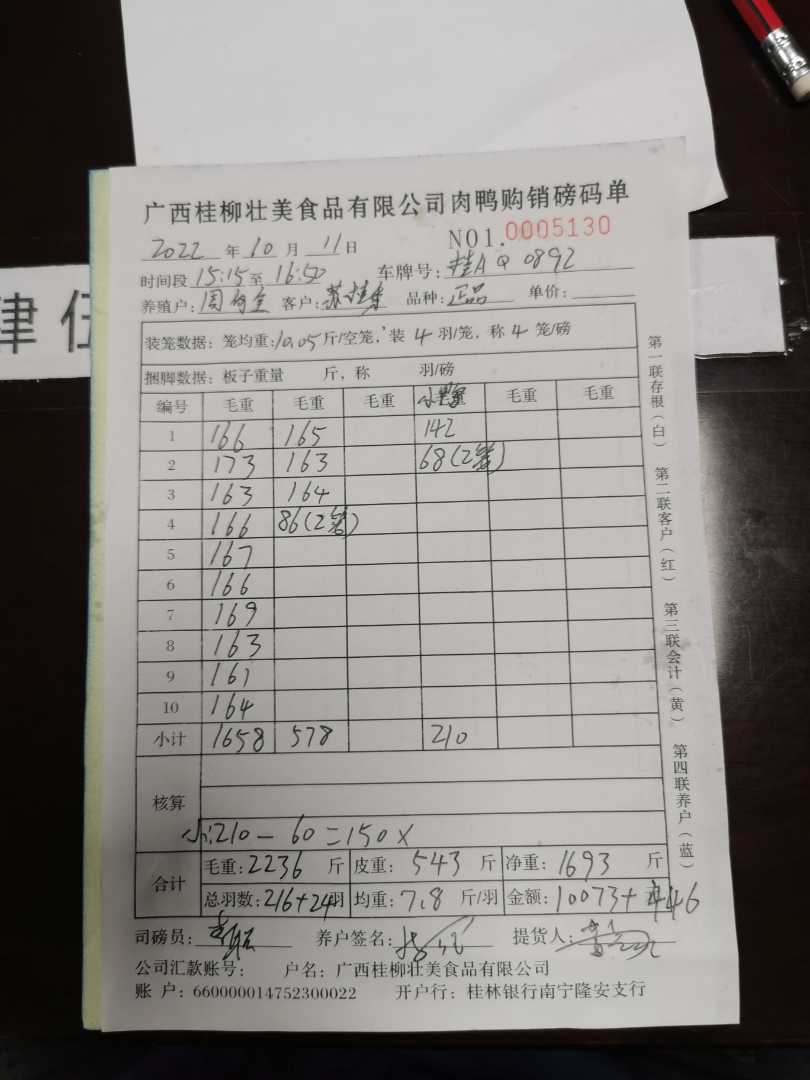 广西桂柳壮美食品有限公司肉鸭购销磅码单
2022 年 10 月 11 日 NO1.0005130
时间段 15:15 至 16:50 车牌号: 桂A Q 0892
养殖户: 周 客户: 苏桂 品种: 正品 单价:
装笼数据: 笼均重: 10.05 斤/空笼, 装 4 羽/笼, 称 4 笼/磅
捆脚数据: 板子重量 斤, 称 羽/磅
编号 毛重 毛重 毛重 毛重 毛重
1 166 165 142
2 173 163 68(2笼)
3 163 164
4 166 86(2笼)
5 167
6 166
7 169
8 163
9 161
10 164
小计 1658 578 210
核算
小:210-60=150X
合计
毛重: 2236 斤 皮重: 543 斤 净重: 1693 斤
总羽数: 216+24 羽 均重: 7.8 斤/羽 金额: 10073+446
司磅员: 养户签名: 提货人:
公司汇款账号: 户名: 广西桂柳壮美食品有限公司
账 户: 660000014752300022 开户行: 桂林银行南宁隆安支行
第一联存根(白) 第二联客户(红) 第三联会计(黄) 第四联养户(蓝)
肆 伍